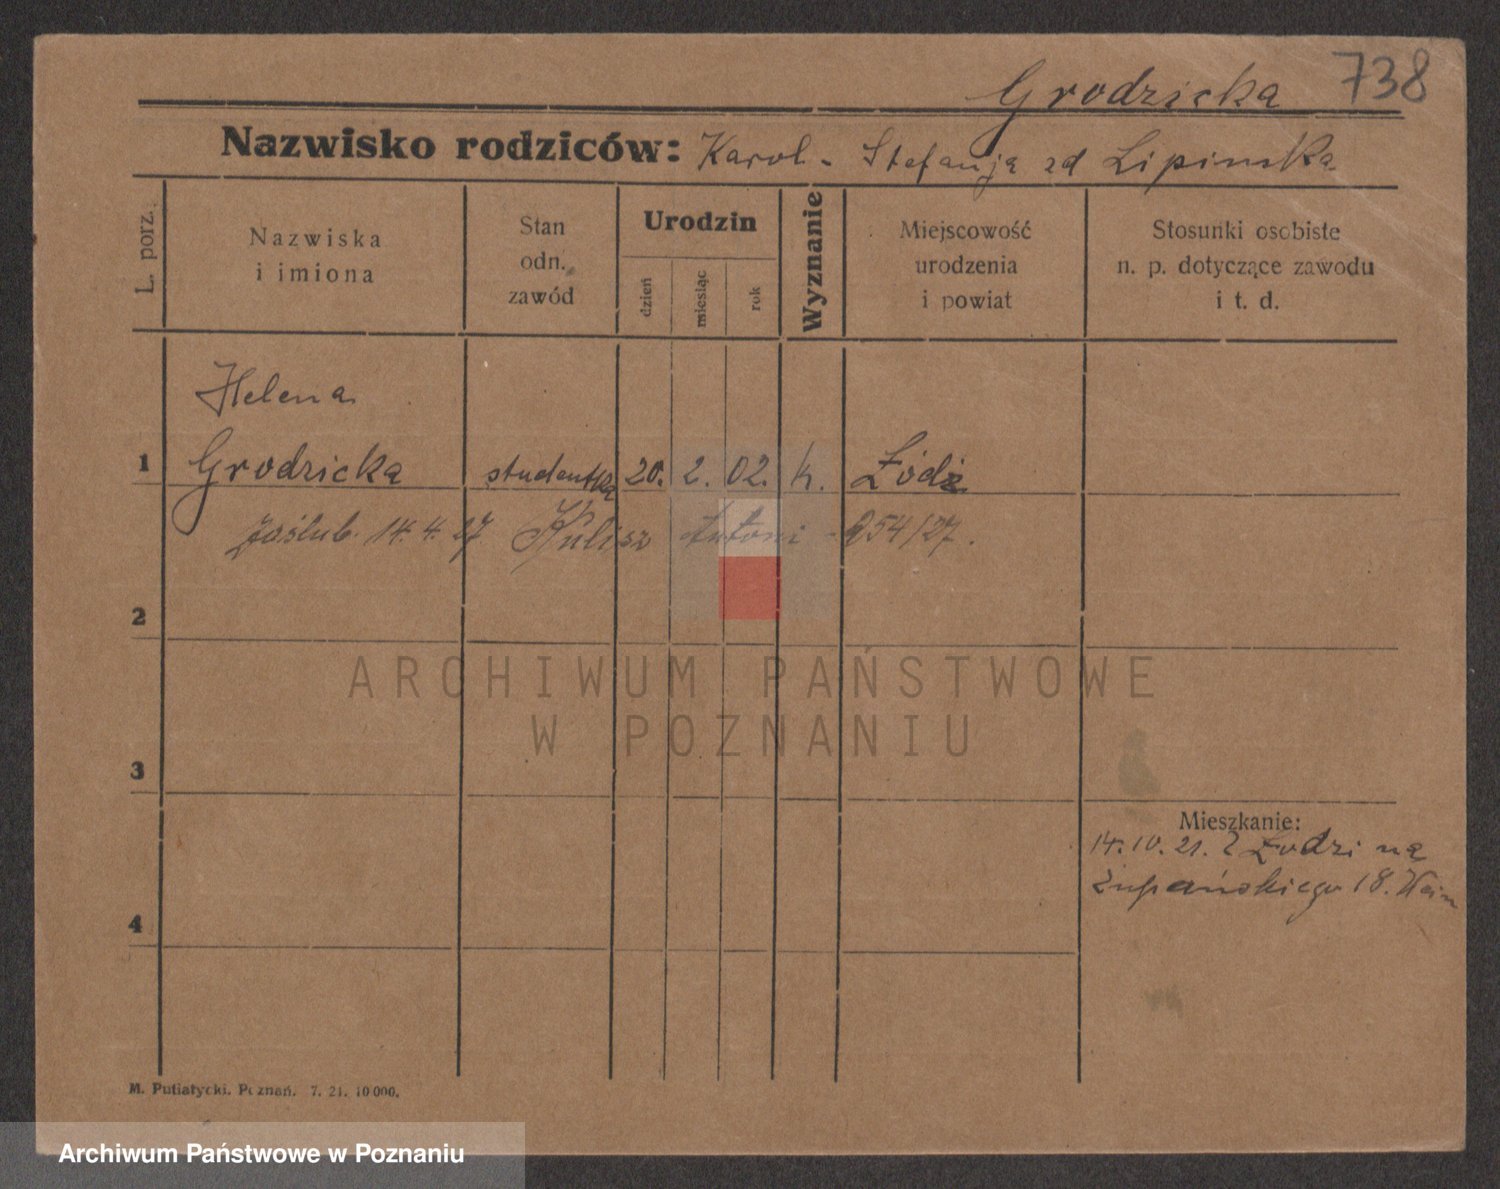 Grodzicka 738
Nazwisko rodziców: Karol - Stefanja zd Lipinska
L. porz.
Nazwiska
i imiona
Stan
odn.
zawód
Urodzin
dzień
miesiąc
rok
Wyznanie
Miejscowość
urodzenia
i powiat
Stosunki osobiste
n. p. dotyczące zawodu
i t. d.
Helena
1 Grodzicka studentka 20. 2. 02. k. Łódź
zaślub. 14. 4. 27 Kulisz Antoni - 954/27.
2
ARCHIWUM PAŃSTWOWE
W POZNANIU
3
Mieszkanie:
14. 10. 21. z Łodzi na
Żupańskiego 18.
4
M. Putiatycki. Poznań. 7. 21. 10 000.
Archiwum Państwowe w Poznaniu